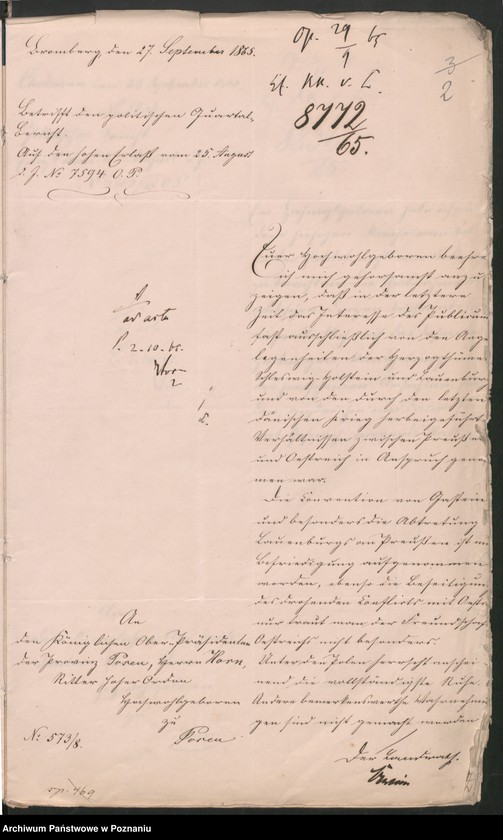 Bromberg, den 27. September 1865.
Op. 29/9 65
3/2
8772/65.
Betrifft den politischen Quartal-
bericht.
Auf den hohen Erlaß vom 25. August
d. J. No 7594 O. P.
Euer Hochwohlgeboren beehre
ich mich gehorsamst anzu-
zeigen, daß in der letzteren
Zeit das Interesse des Publikums
fast ausschließlich von den Ange-
legenheiten der Herzogthümer
Schleswig-Holstein und Lauenburg
und von den durch den letzten
dänischen Krieg herbeigeführten
Verhältnissen zwischen Preußen
und Oestreich in Anspruch genom-
men war.
Die Convention von Gastein
und besonders die Abtretung
Lauenburgs an Preußen ist mit
Befriedigung aufgenommen
worden, ebenso die Beseitigung
des drohenden Conflicts mit Oestreich,
nur traut man der Freundschaft
Oestreichs nicht besonders.
Unter den Polen herrscht anschei-
nend die vollständigste Ruhe.
Andere bemerkenswerthe Wahrnehmun-
gen sind nicht gemacht worden.
Der Landrath.
ad acta
P. 2.10.65.
An
den Königlichen Ober-Präsidenten
der Provinz Posen, Herrn Horn,
Ritter hoher Orden
Hochwohlgeboren
zu
Posen
No 573/8.
Archiwum Państwowe w Poznaniu